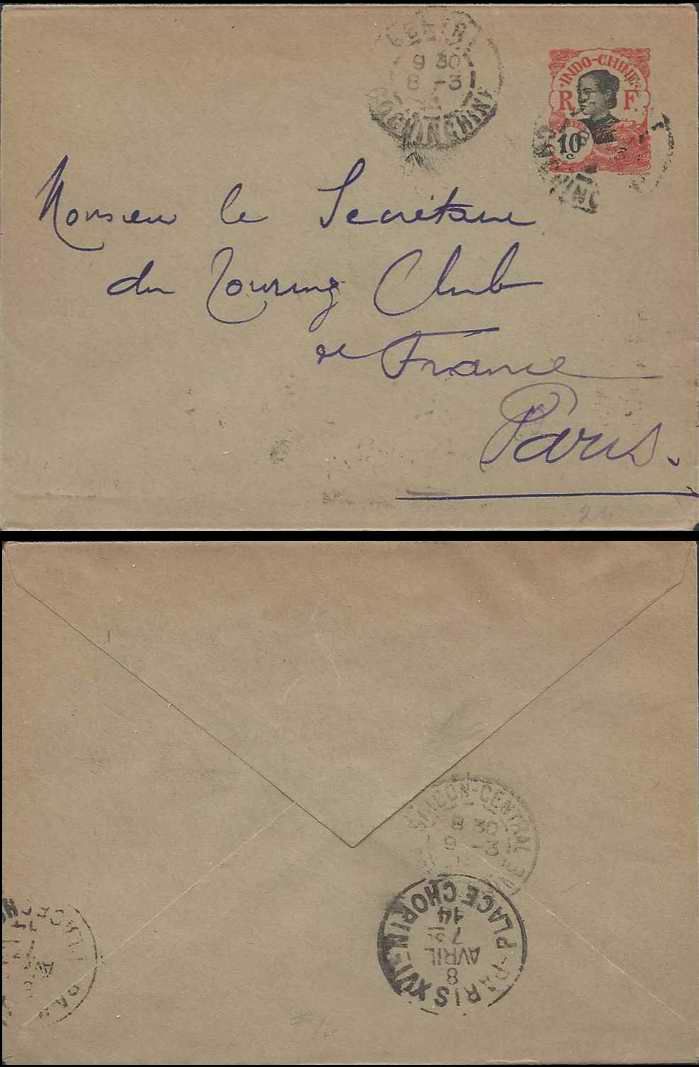 9 30
8 -3
COCHINCHINE
INDO-CHINE
R F
10
Monsieur le Secrétaire
du Touring Club
de France
Paris.
SAIGON-CENTRAL
8 30
9 -3
PARIS XVI - PLACE CHOPIN
8
AVRIL
7
14